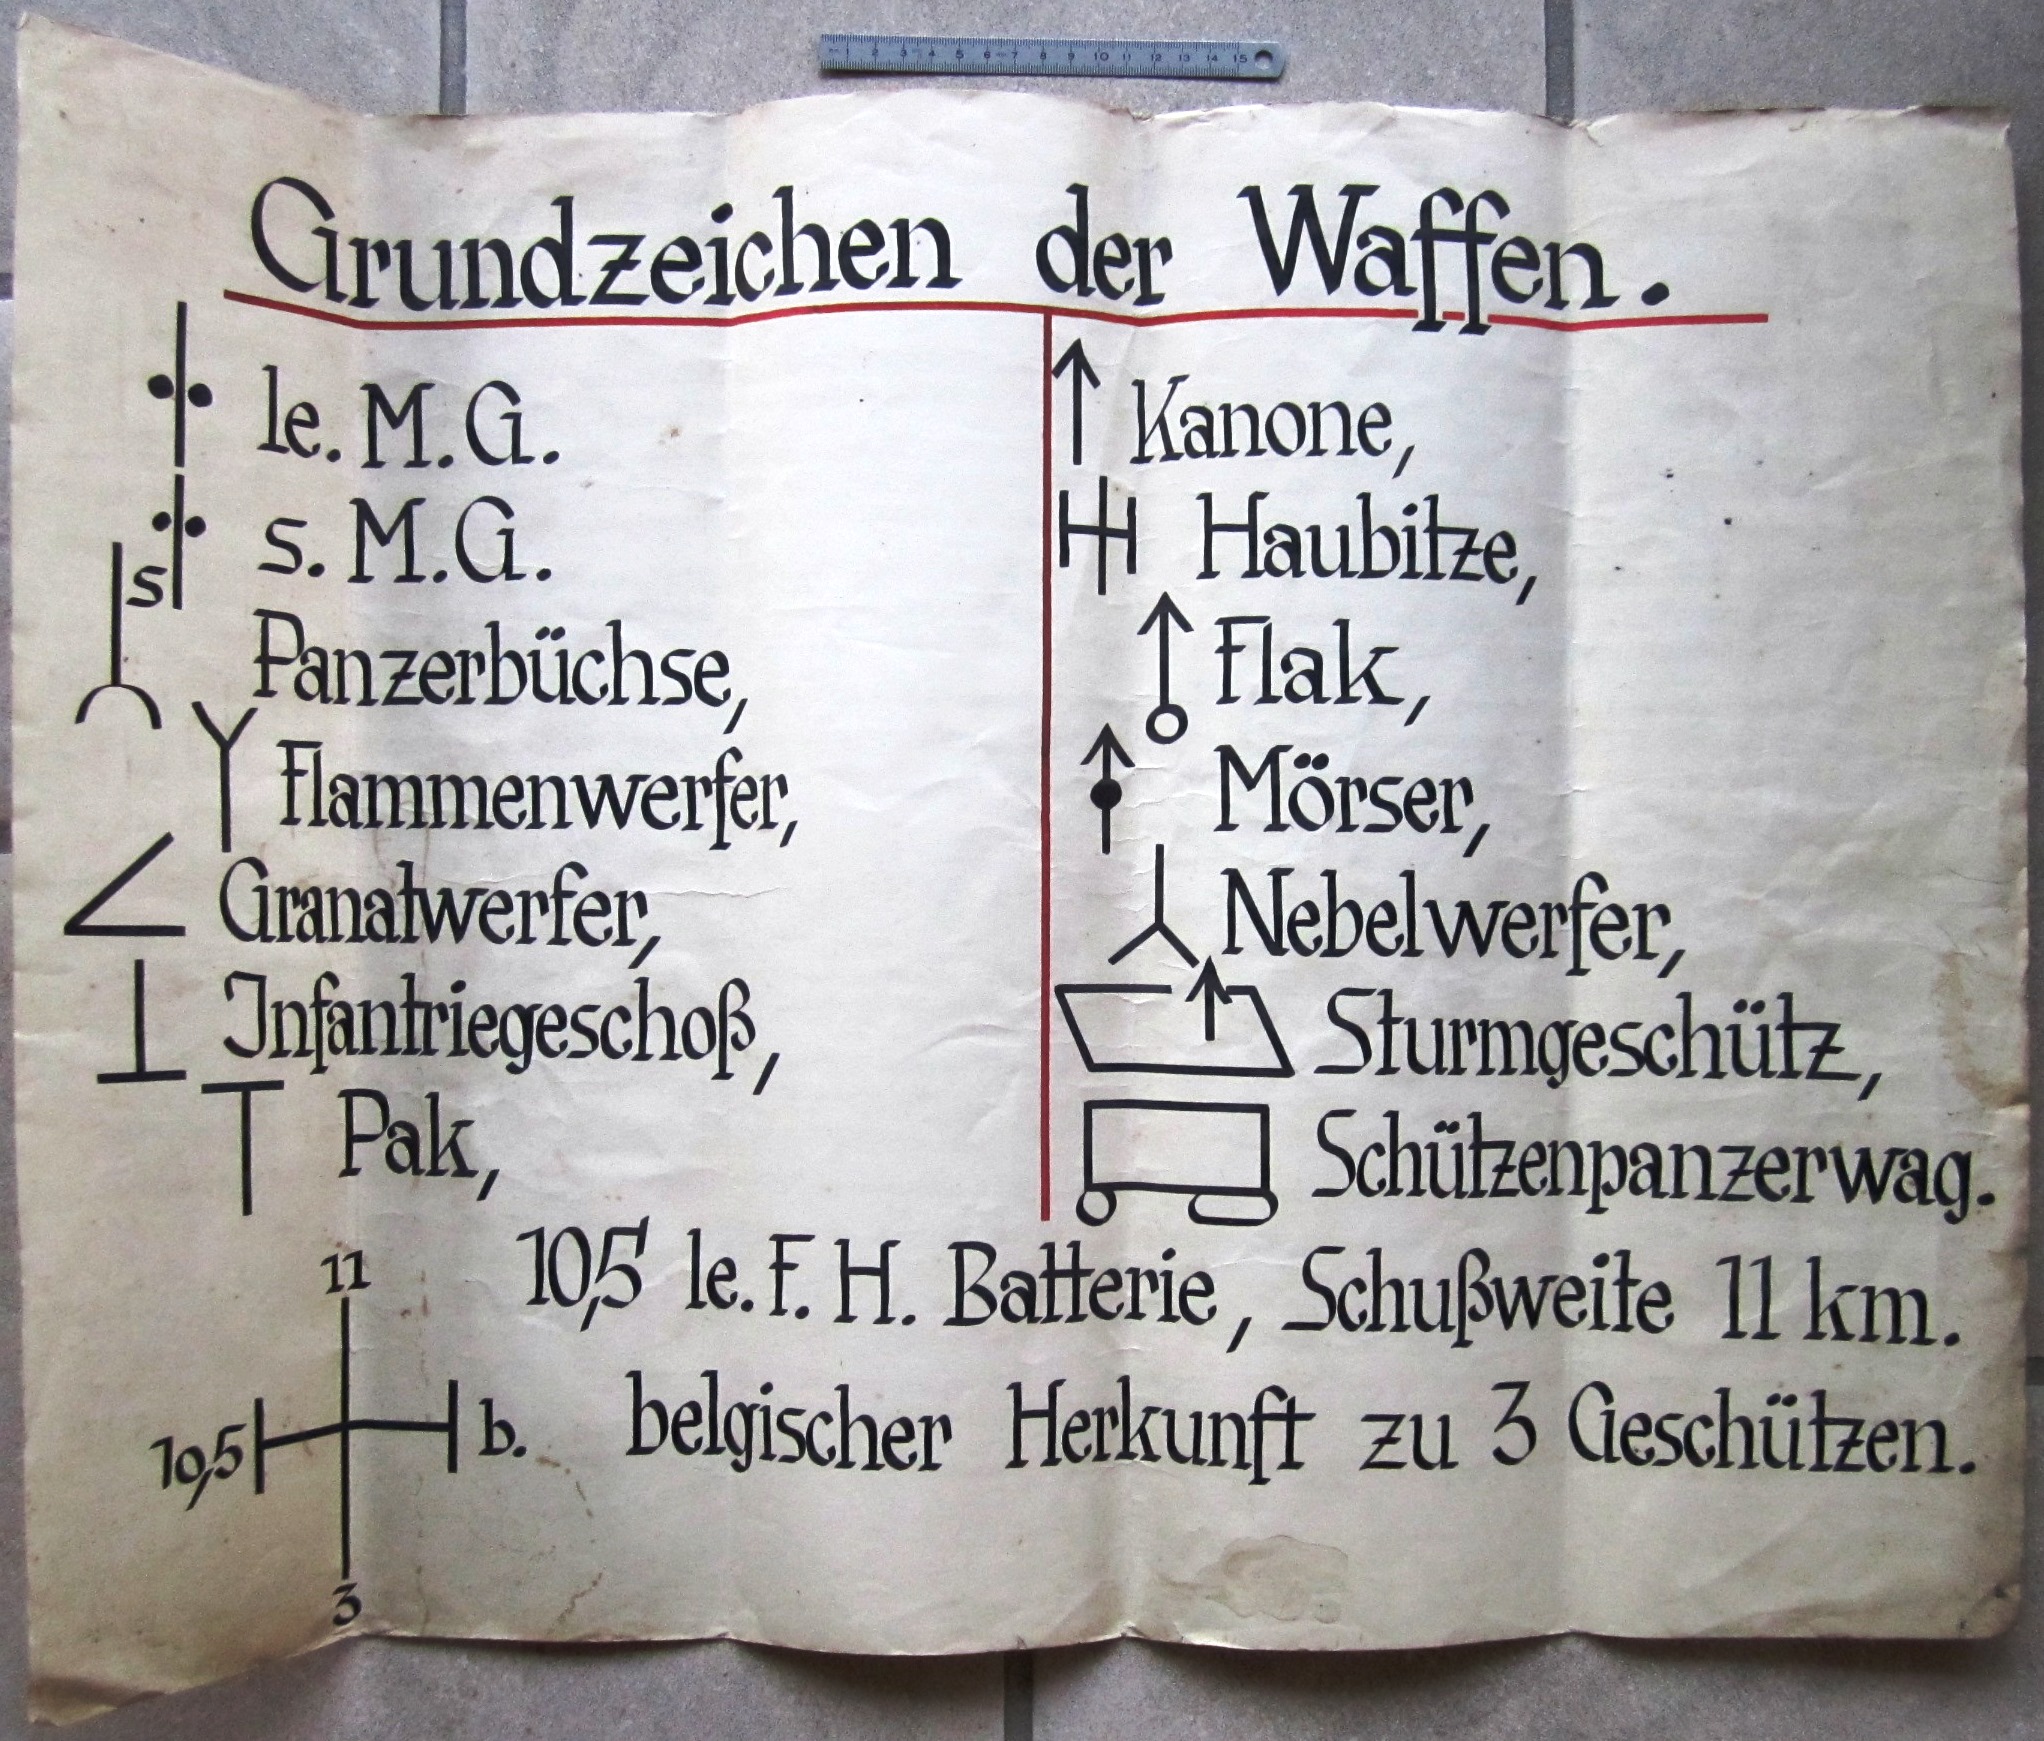 Grundzeichen der Waffen.
le. M. G.
s. M. G.
s
Panzerbüchse,
Flammenwerfer,
Granatwerfer,
Infantriegeschoß,
Pak,
Kanone,
Haubitze,
Flak,
Mörser,
Nebelwerfer,
Sturmgeschütz,
Schützenpanzerwag.
11
10,5 le. F. H. Batterie, Schußweite 11 km.
10,5 b. belgischer Herkunft zu 3 Geschützen.
3
1 2 3 4 5 6 7 8 9 10 11 12 13 14 15